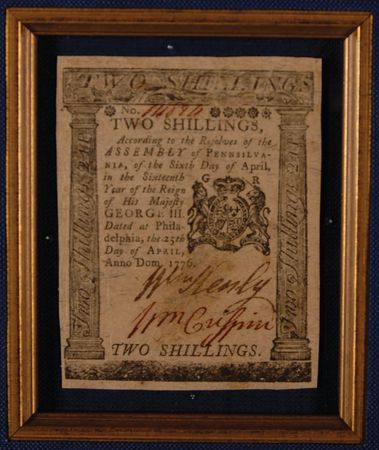 TWO SHILLINGS
No.
TWO SHILLINGS,
According to the Resolves of the
ASSEMBLY of PENNSILVA-
NIA, of the Sixth Day of April,
in the Sixteenth
Year of the Reign
of His Majesty
GEORGE III.
Dated at Phila-
delphia, the 25th
Day of APRIL,
Anno Dom. 1776.
G R
Two Shillings
Two Shillings
Wm
Wm
TWO SHILLINGS.